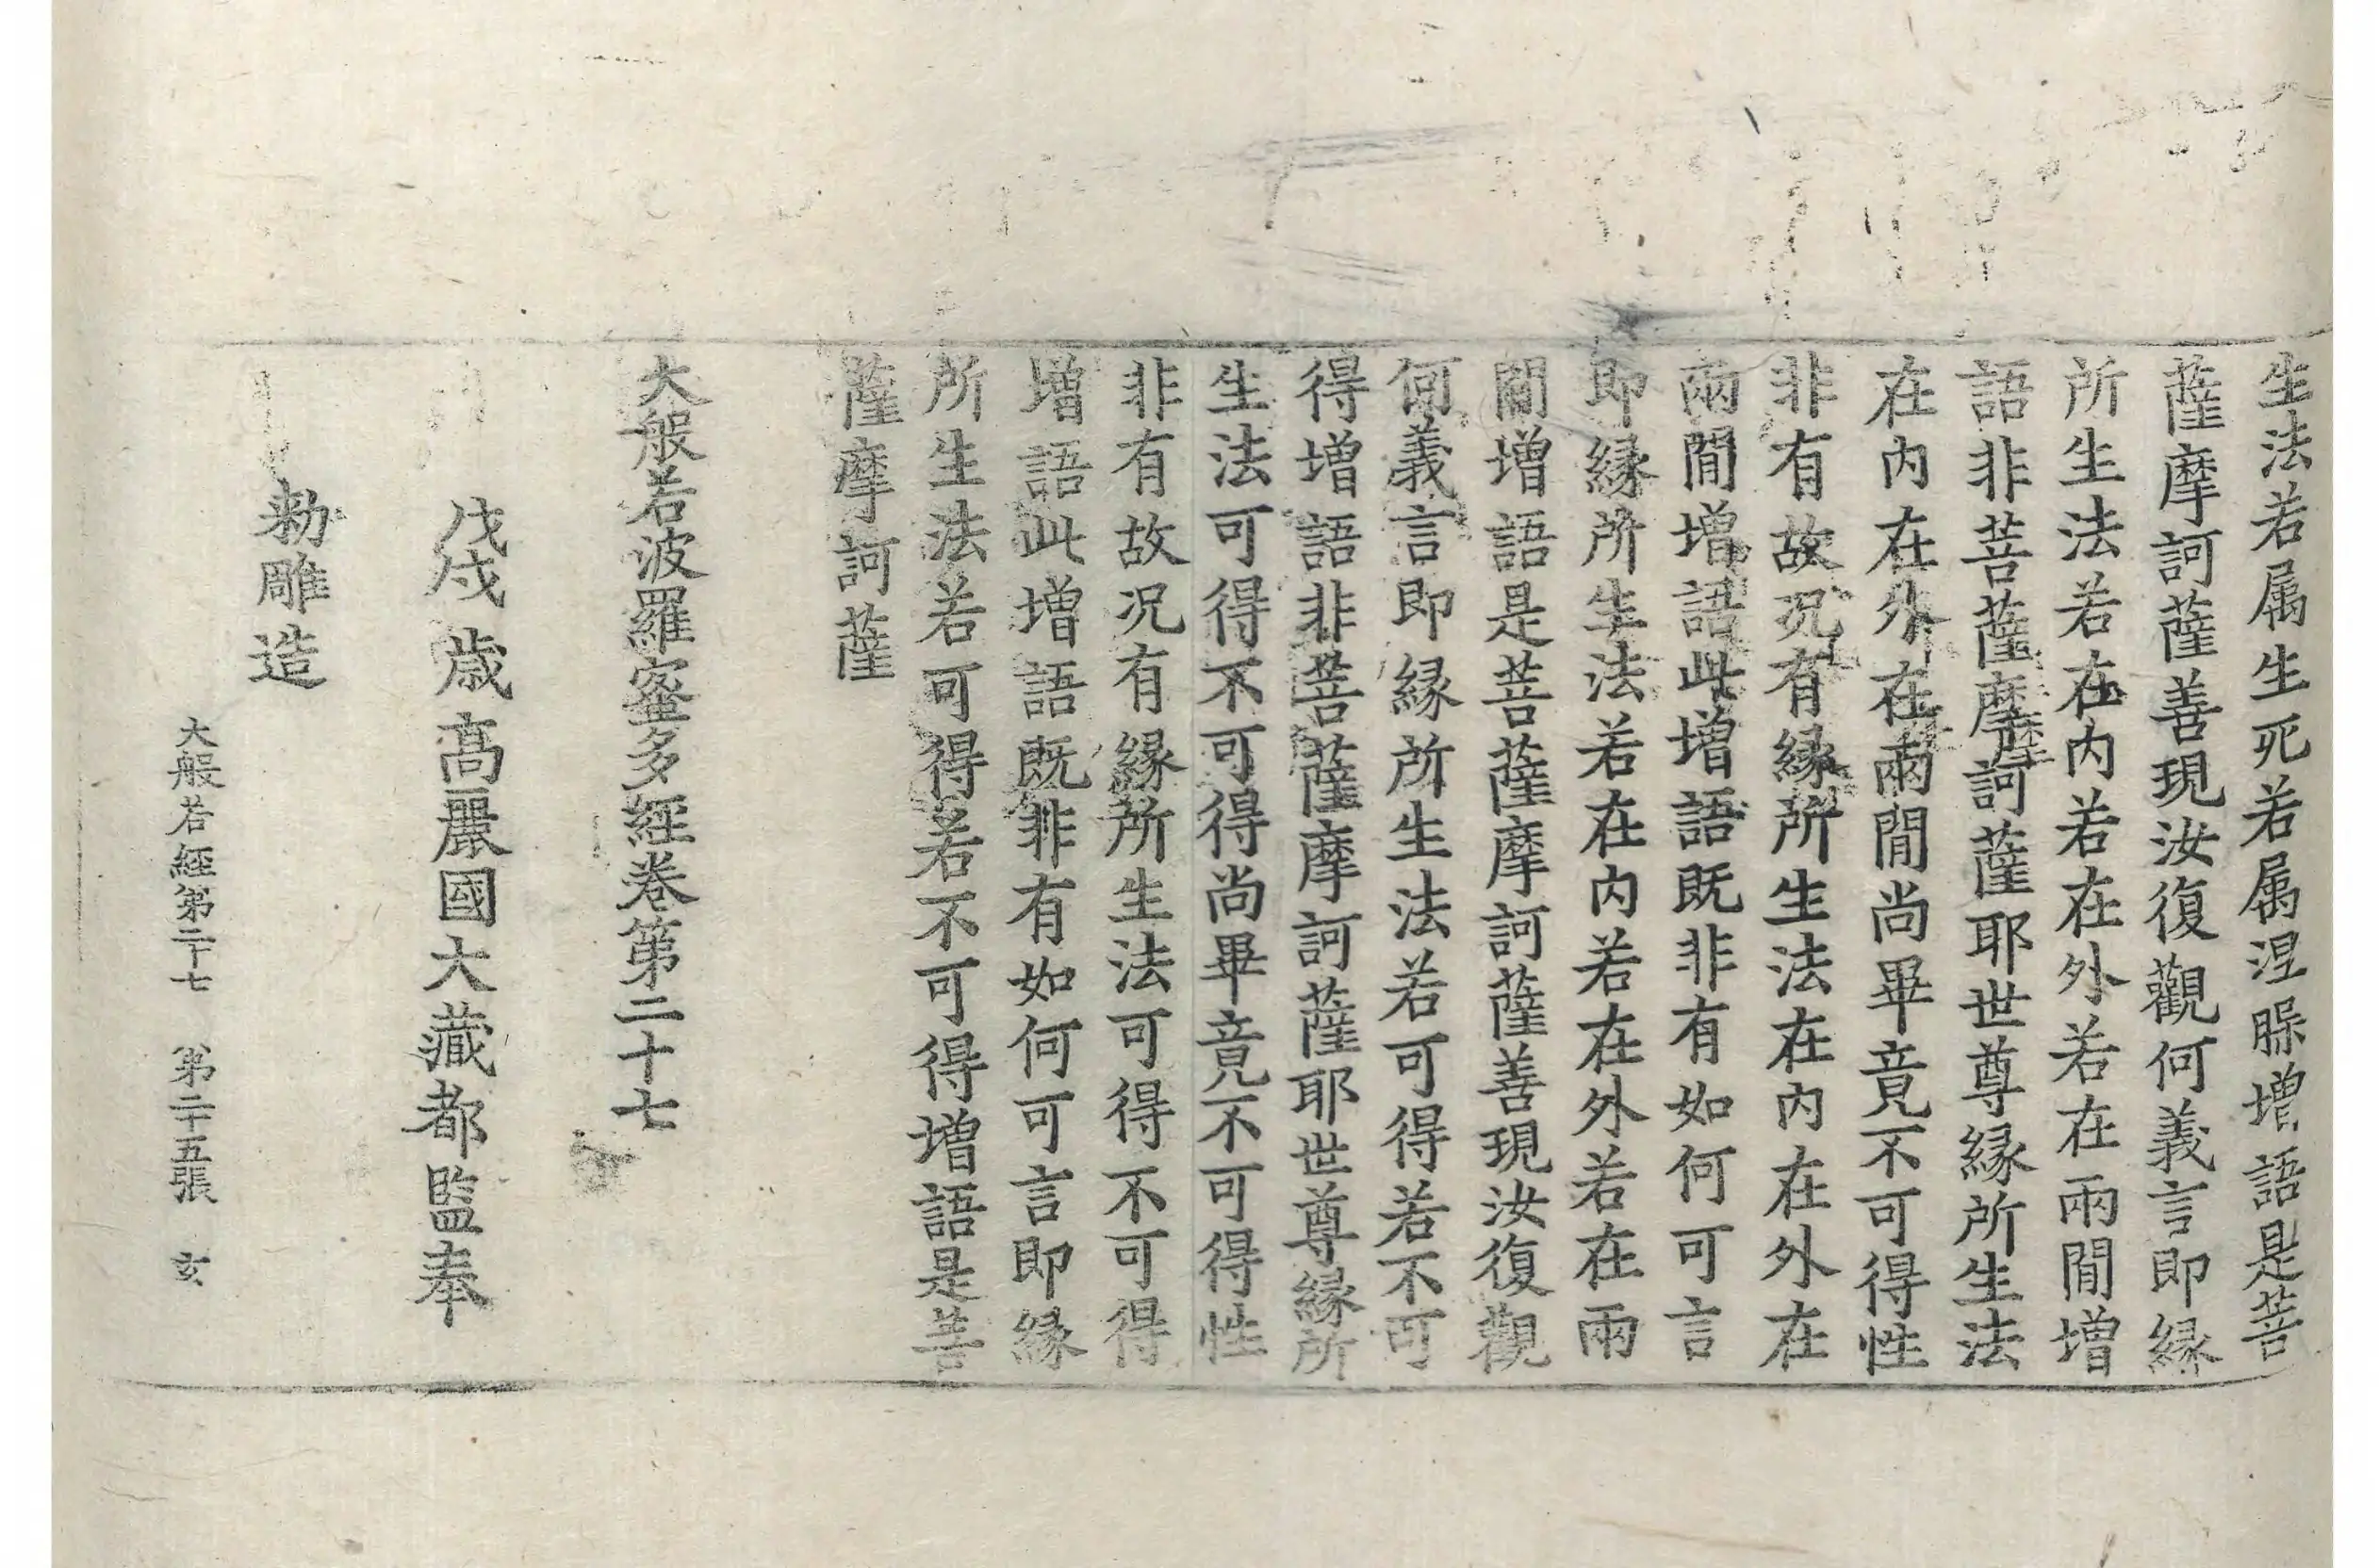 生法若属生死若属涅槃增語是菩
薩摩訶薩善現汝復觀何義言即縁
所生法若在内若在外若在兩閒增
語非菩薩摩訶薩耶世尊縁所生法
在内在外在兩閒尚畢竟不可得性
非有故况有縁所生法在内在外在
兩閒增語此增語既非有如何可言
即縁所生法若在内若在外若在兩
閒增語是菩薩摩訶薩善現汝復觀
何義言即縁所生法若可得若不可
得增語非菩薩摩訶薩耶世尊縁所
生法可得不可得尚畢竟不可得性
非有故况有縁所生法可得不可得
增語此增語既非有如何可言即縁
所生法若可得若不可得增語是菩
薩摩訶薩
大般若波羅蜜多經卷第二十七
戊戌歲高麗國大藏都監奉
勑雕造
大般若經第二十七 第二十五張 玄